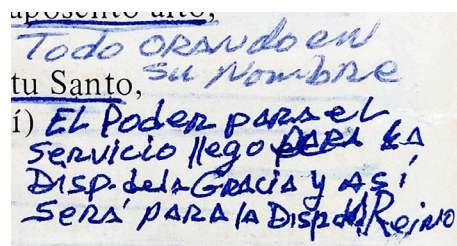 aposento alto,
Todo ORANdo en
Su Nombre
tu Santo,
í) EL Poder para el
servicio llego PARA LA
Disp. dela GRACIA y ASí
SERá PARA la Disp. del Reino